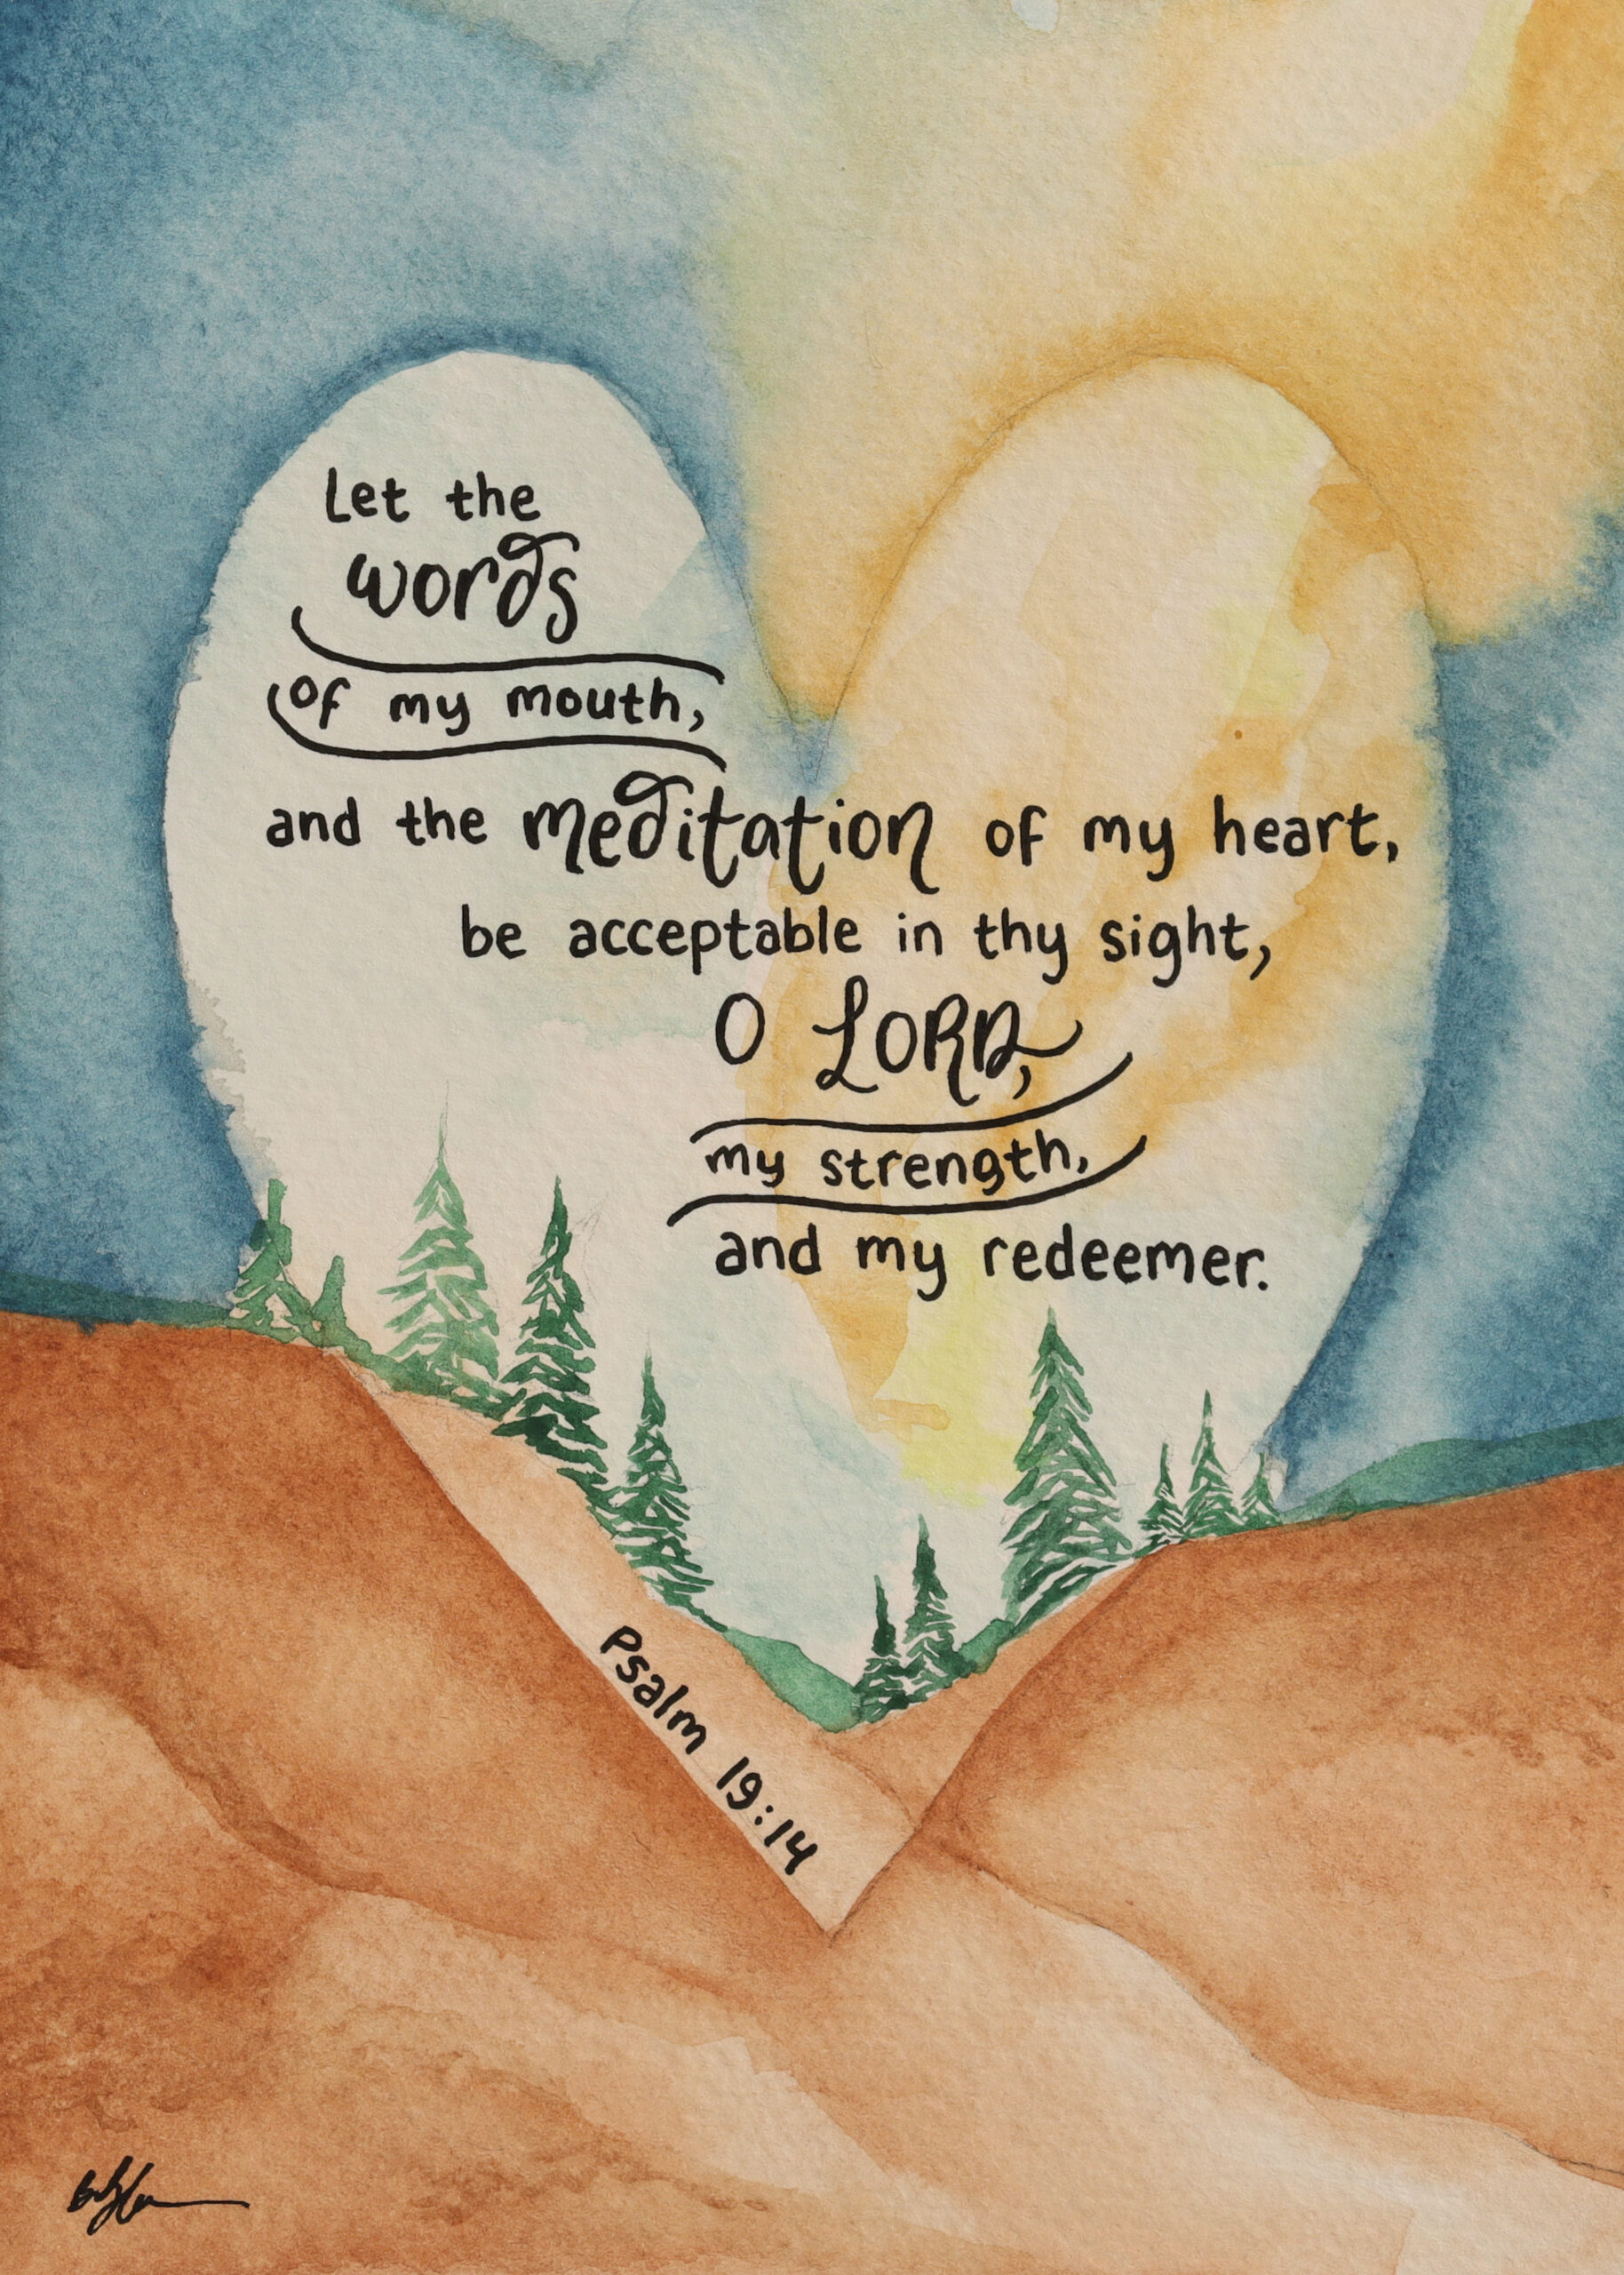 Let the
words
of my mouth,
and the meditation of my heart,
be acceptable in thy sight,
O LORD,
my strength,
and my redeemer.
Psalm 19:14